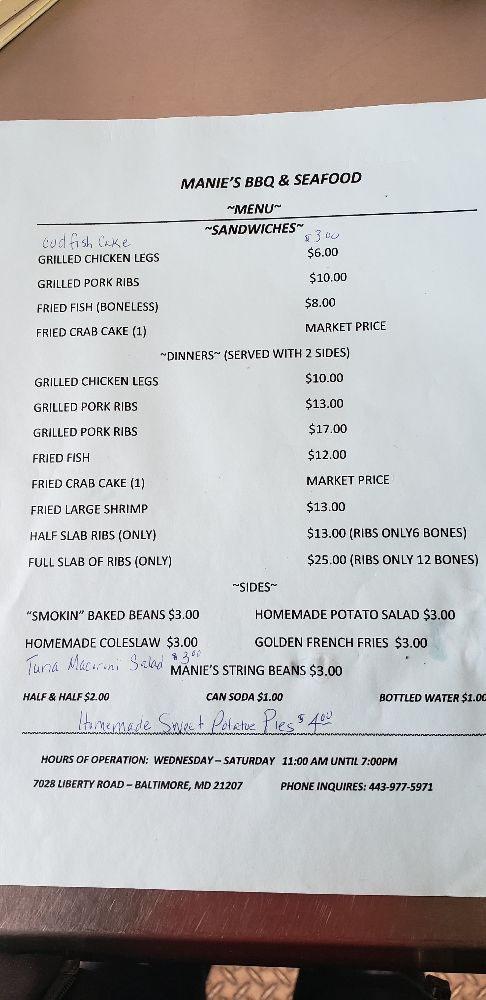 MANIE'S BBQ & SEAFOOD
~MENU~
~SANDWICHES~
Codfish Cake $3.00
GRILLED CHICKEN LEGS $6.00
GRILLED PORK RIBS $10.00
FRIED FISH (BONELESS) $8.00
FRIED CRAB CAKE (1) MARKET PRICE
~DINNERS~ (SERVED WITH 2 SIDES)
GRILLED CHICKEN LEGS $10.00
GRILLED PORK RIBS $13.00
GRILLED PORK RIBS $17.00
FRIED FISH $12.00
FRIED CRAB CAKE (1) MARKET PRICE
FRIED LARGE SHRIMP $13.00
HALF SLAB RIBS (ONLY) $13.00 (RIBS ONLY6 BONES)
FULL SLAB OF RIBS (ONLY) $25.00 (RIBS ONLY 12 BONES)
~SIDES~
"SMOKIN" BAKED BEANS $3.00 HOMEMADE POTATO SALAD $3.00
HOMEMADE COLESLAW $3.00 GOLDEN FRENCH FRIES $3.00
Tuna Macaroni Salad $3.00
MANIE'S STRING BEANS $3.00
HALF & HALF $2.00 CAN SODA $1.00 BOTTLED WATER $1.00
Homemade Sweet Potatoe Pies $4.00
HOURS OF OPERATION: WEDNESDAY – SATURDAY 11:00 AM UNTIL 7:00PM
7028 LIBERTY ROAD – BALTIMORE, MD 21207 PHONE INQUIRES: 443-977-5971